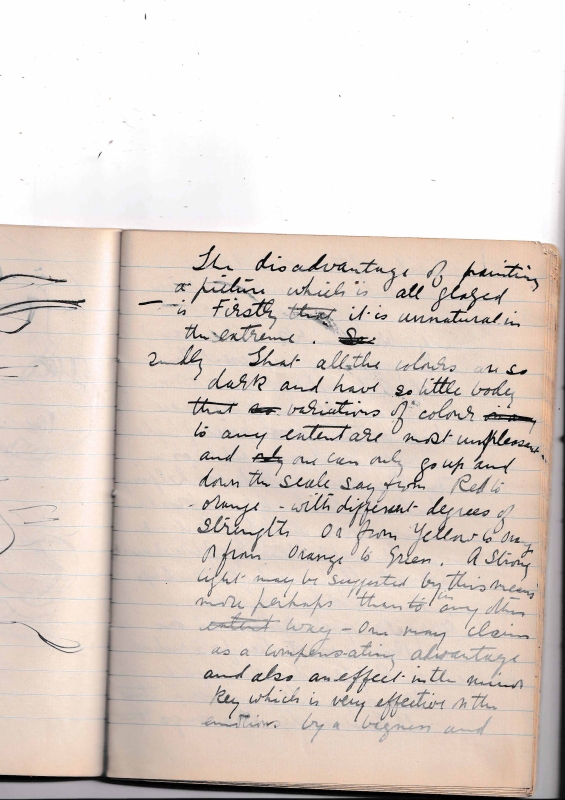 The disadvantage of painting
a picture which is all glazed
– is Firstly that it is unnatural in
the extreme. So
2ndly That all the colours are so
dark and have so little body
that so variations of colour many
to any extent are most unpleasant
and only one can only go up and
down the scale say from Red to
orange - with different degrees of
strength Or from Yellow to Orange
or from Orange to Green. A Strong
light may be suggested by this means
more perhaps than to in any other
extent way - One may claim
as a compensating advantage
and also an effect in the minor
key which is very effective on the
emotions by a bigness and